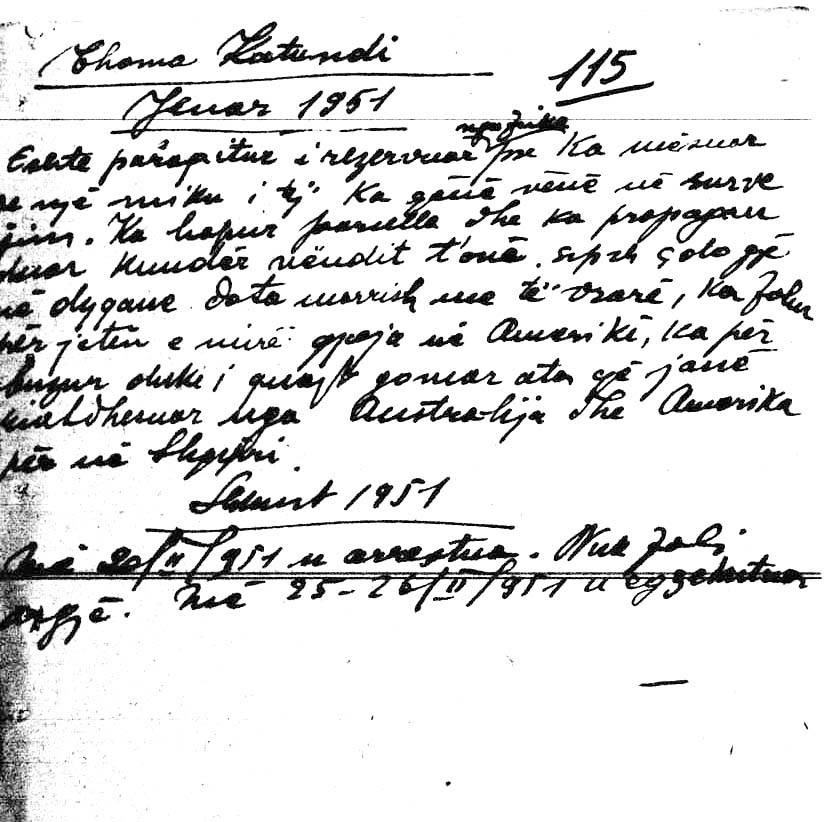 Thoma Katundi
115
Jenar 1951
nga frika
Eshtë paraqitur i rezervuar pse Ka mësuar
se një miku i tij Ka qënë vënë në surve
jim. Ka hapur parulla dhe ka propagan
duar Kundër vëndit t'onë, sepse çdo gjë
në dygane do ta marrish me të vrarë, Ka folur
për jetën e mirë gjoja në Amerikë, ka për
buzur duke i quajt gomar ata që janë
riatdhesuar nga Australija dhe Amerika
për në Shqipëri.
Shkurt 1951
Më 20/II/951 u arrestua. Nuk foli
asgjë. Më 25-26/II/951 u egzekutua